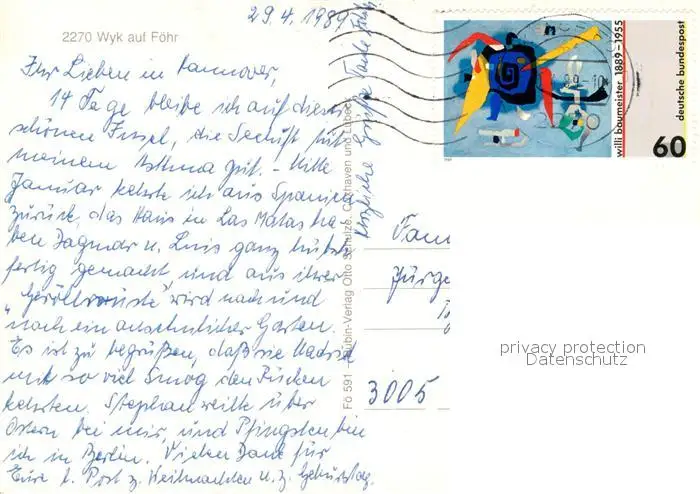 29.4.1989
2270 Wyk auf Föhr
Ihr Lieben in Hannover,
14 Tage bleibe ich auf dieser
schönen Insel, die Seeluft tut
meinem Asthma gut. - Mitte
Januar kehrte ich aus Spanien
zurück, das Haus in Las Matas ha-
ben Dagmar u. Luis ganz hübsch
fertig gemacht und aus ihrer
"Geröllwüste" wird nach und
nach ein ansehnlicher Garten.
Es ist zu begrüßen, daß sie Madrid
mit so viel Smog den Rücken
kehrten. Stephan weilte über
Ostern bei mir, und Pfingsten bin
ich in Berlin. Vielen Dank für
Eure l. Post z. Weihnachten u. z. Geburtstag.
Herzliche Grüße
Fö 591 Schütze, Cuxhaven und Lübeck
willi baumeister 1889-1955
deutsche bundespost
60
Fam
Jürge
3005
privacy protection
Datenschutz